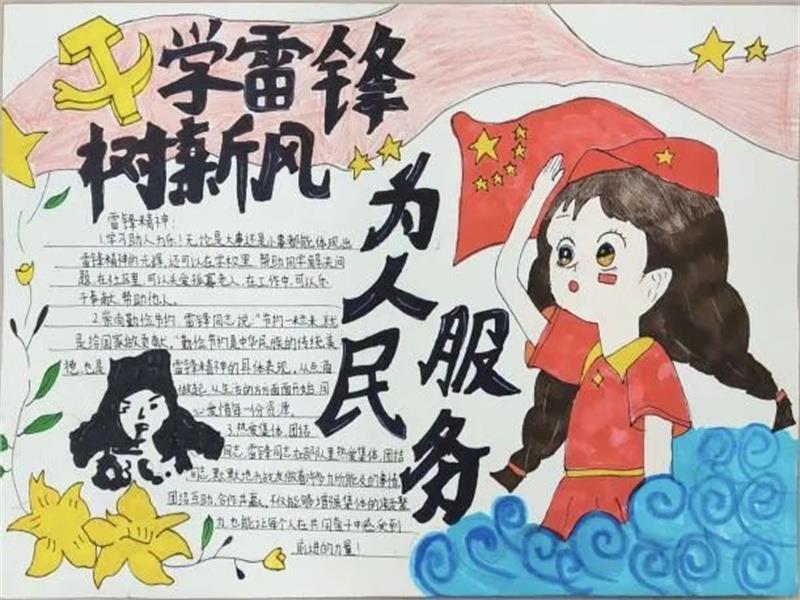 学雷锋
树新风
为人民
服务
雷锋精神:
1.学习助人为乐!无论是大事还是小事都能体现出
雷锋精神的光辉,还可以在学校里,帮助同学解决问
题,在社区里,可以关爱孤寡老人,在工作中,可以乐
于奉献,帮助他人。
2.崇尚勤俭节约,雷锋同志说:"节约一粒米,就
是给国家做贡献,"勤俭节约是中华民族的传统美
德,也是
雷锋精神的具体表现。从点滴
做起,从生活的方方面面开始,用
心爱惜每一份资源。
3.热爱集体,团结
同志,雷锋同志在部队里热爱集体,团结
同志,默默地为战友做着力所能及的事情,
团结互助,合作共赢,不仅能够增强集体的凝聚
力,也能让每个人在共同奋斗中感受到
前进的力量!